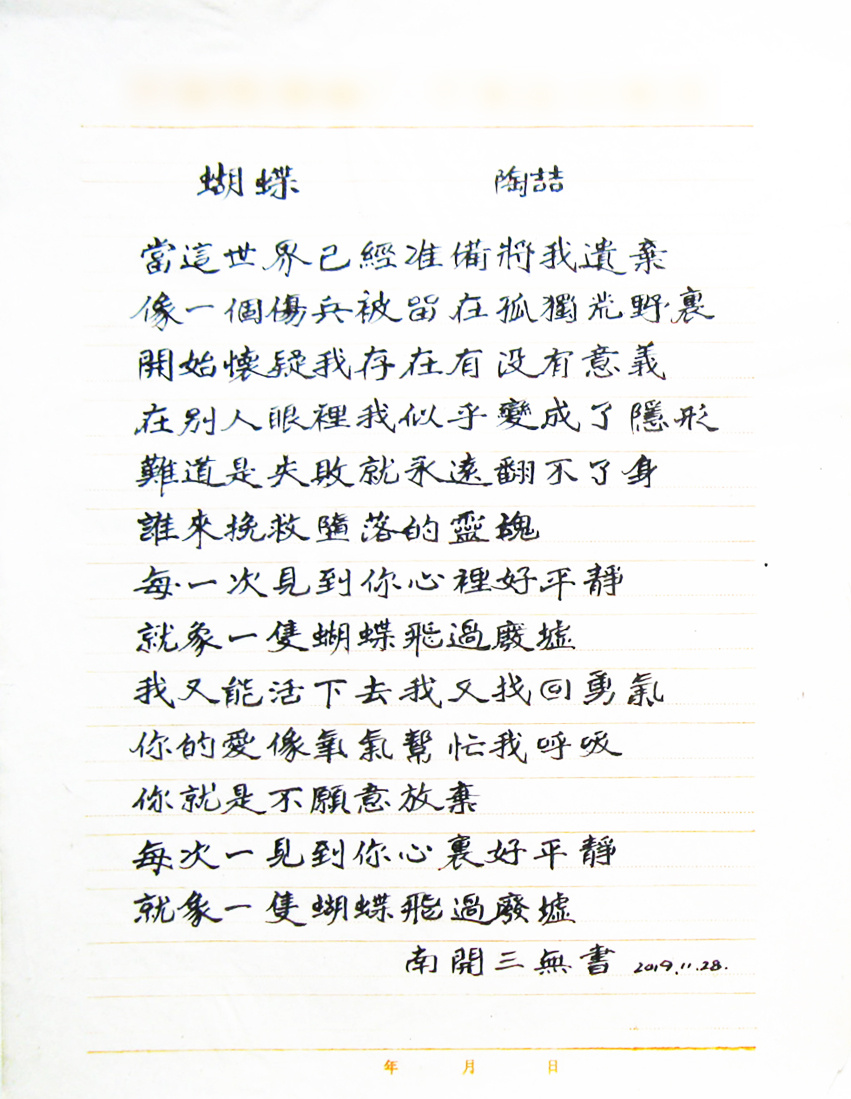 蝴蝶 陶喆
當這世界已經准備將我遺棄
像一個傷兵被留在孤獨荒野裏
開始懷疑我存在有没有意義
在别人眼裡我似乎變成了隱形
難道是失敗就永遠翻不了身
誰來挽救墮落的靈魂
每一次見到你心裡好平靜
就象一隻蝴蝶飛過廢墟
我又能活下去我又找回勇氣
你的愛像氧氣幫忙我呼吸
你就是不願意放棄
每次一見到你心裏好平靜
就象一隻蝴蝶飛過廢墟
南開三無書 2019.11.28.
年 月 日